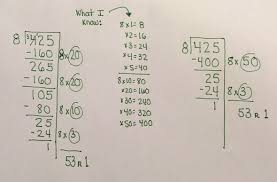 What I Know:
8x1=8
x2=16
x3=24
x4=32
x5=40
8x10=80
x20=160
x30=240
x40=320
x50=400
8 425
-160 8x20
265
-160 8x20
105
-80 8x10
25
-24 8x3
1
53 R 1
8 425
-400 8x50
25
-24 8x3
1
53 R 1